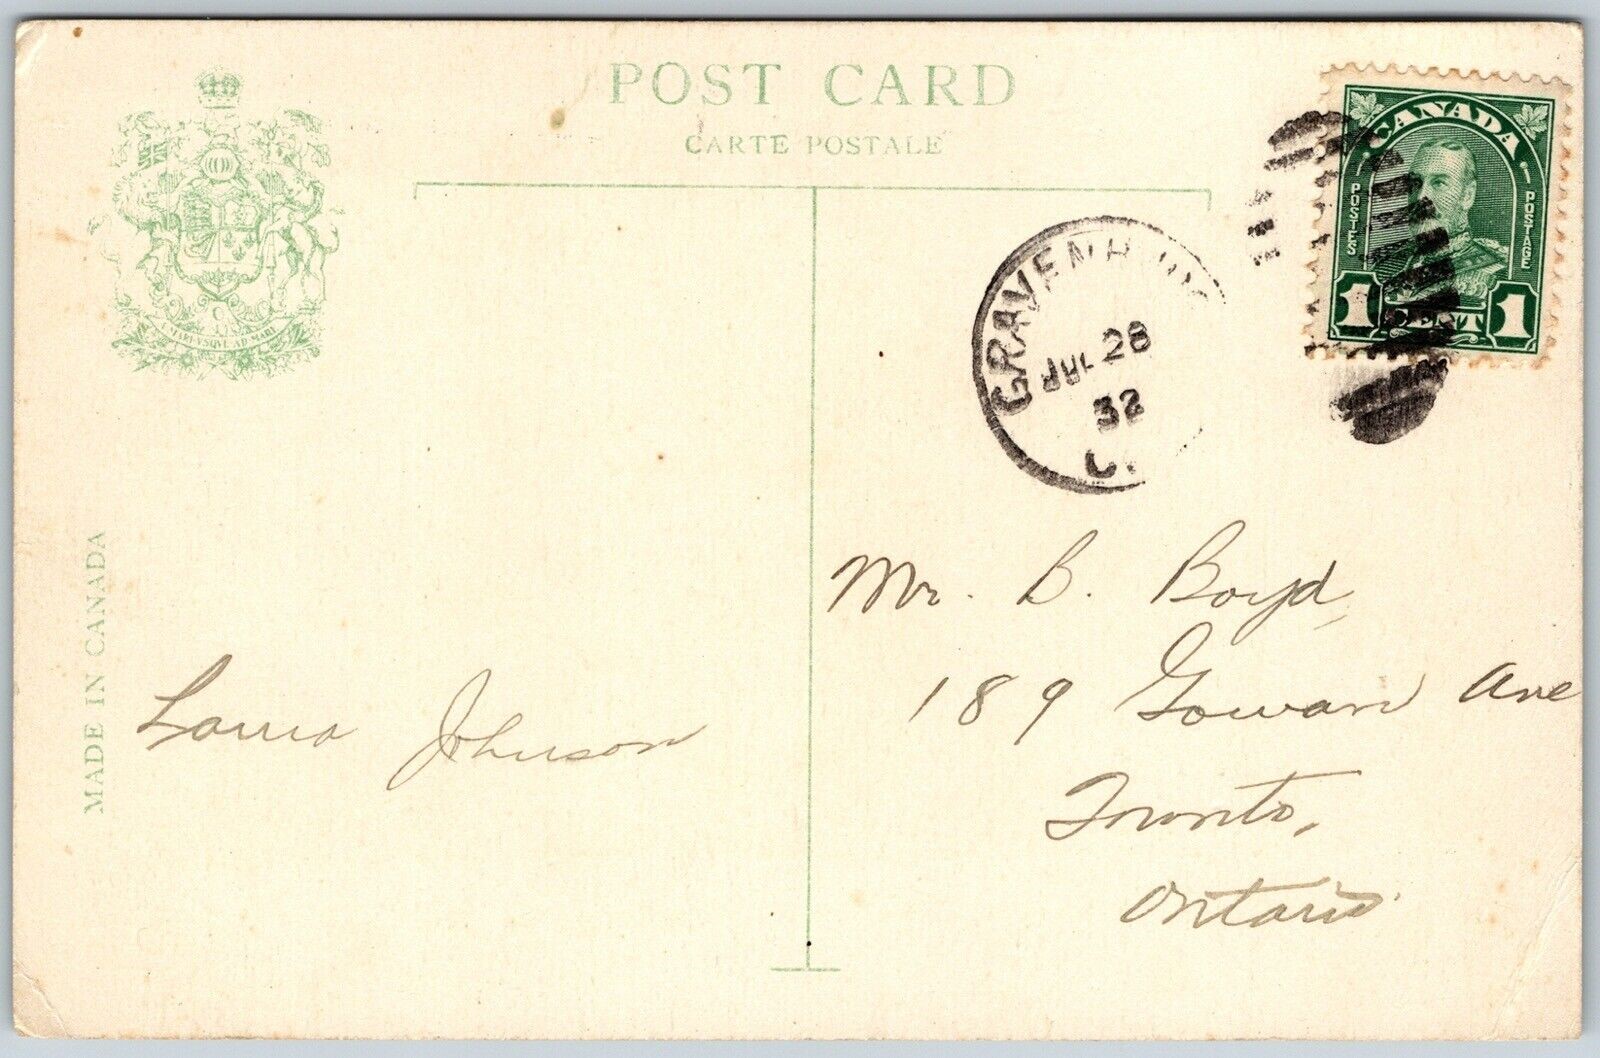 POST CARD
CARTE POSTALE
CANADA
POSTES
POSTAGE
1 CENT 1
JUL 28
32
A MARI VSQVE AD MARE
MADE IN CANADA
Mr. B. Boyd,
189 Gowan Ave
Toronto,
Ontario.
Johnson